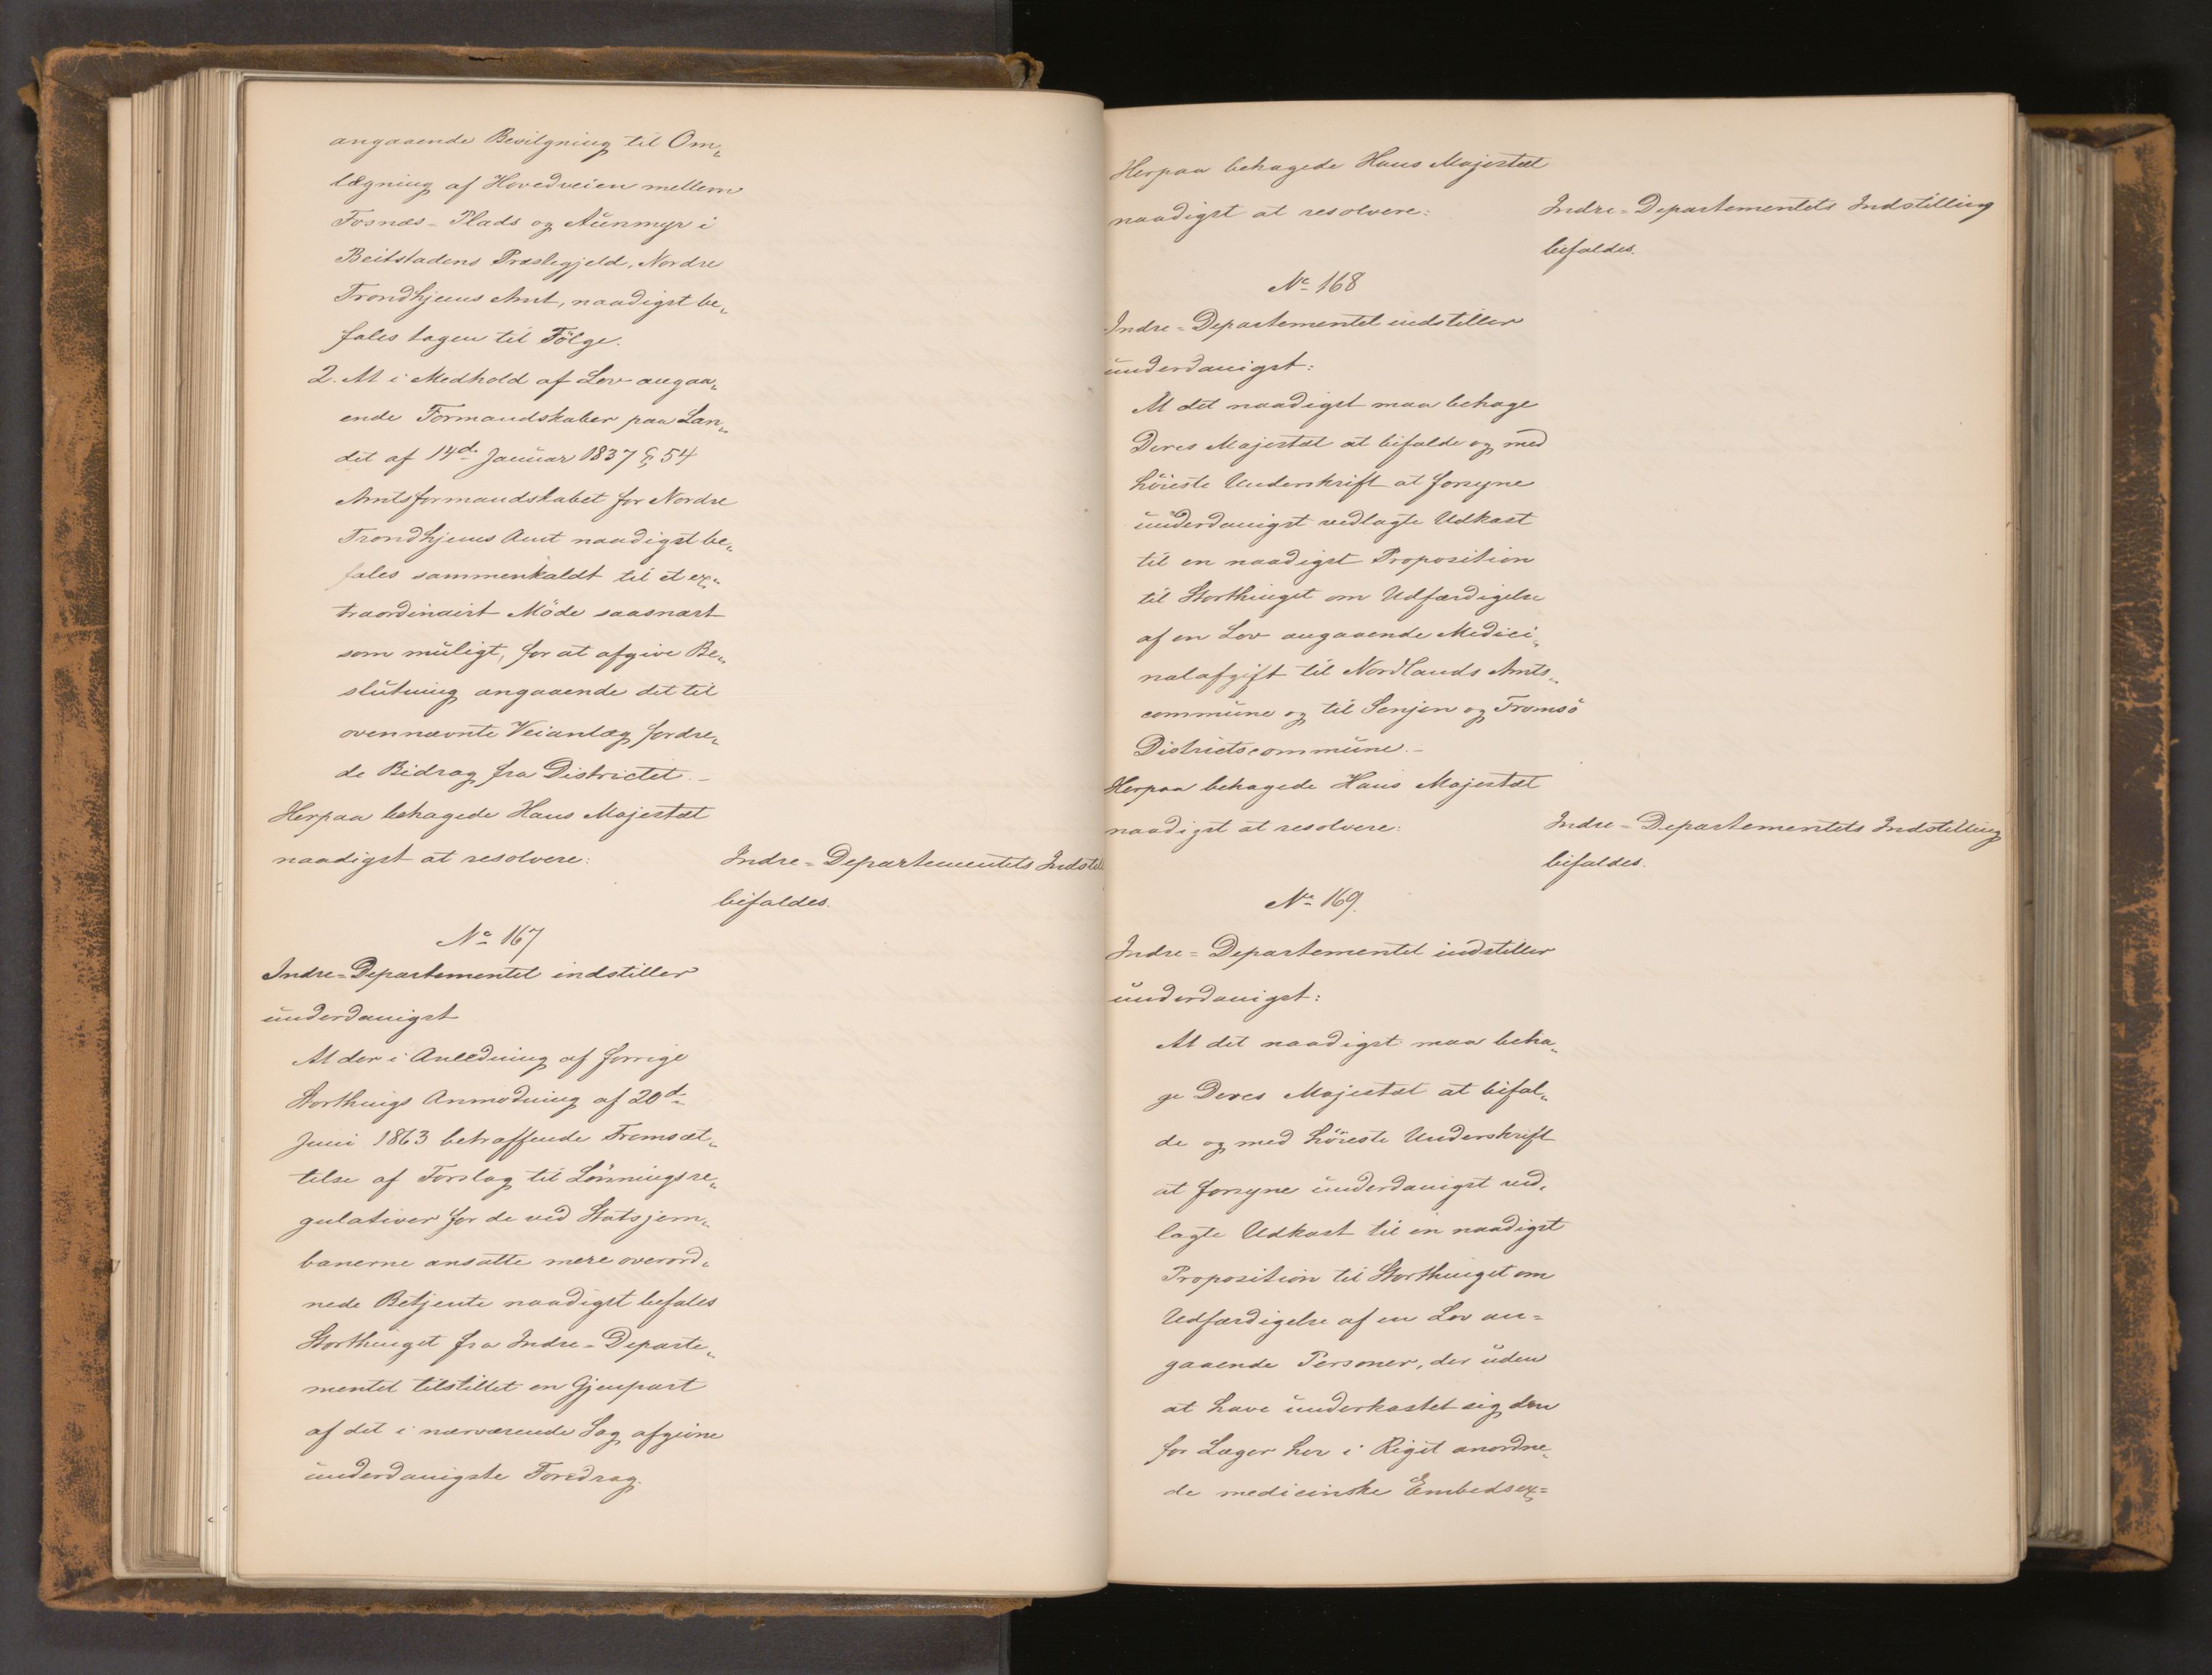 angaaende Bevilgning til Om„
lægning af Hovedveien mellem
Fosnæs-Plads og Aunmyr i
Beitstadens Præstegjeld, Nordre
Trondhjems Amt, naadigst be„
fales tagen til Følge.
2. At i Medhold af Lov angaa„
ende Formandskaber paa Lan„
det af 14d. Januar 1837 § 54
Amtsformandskabet for Nordre
Trondhjems Amt naadigst be„
fales sammenkaldt til et ex„
traordinairt Møde saasnart
som muligt, for at afgive Be„
slutning angaaende det til
ovennævnte Veianlæg fordre„
de Bidrag fra Districtet.-
Herpaa behagede Hans Majestæt
naadigst at resolvere:
Indre=Departementets Indstill
bifaldes.
No 167
Indre=Departementet indstiller
underdanigst
At der i Anledning af forrige
Storthings Anmodning af 20d.
Juni 1863 betræffende Fremsæt„
telse af Forslag til Lønningsre„
gulativer for de ved Statsjern„
banerne ansatte mere overord„
nede Betjente naadigst befales
Storthinget fra Indre=Departe„
mentet tilstillet en Gjenpart
af det i nærværende Sag afgivne
underdanigste Foredrag.
Herpaa behagede Hans Majestæt
naadigst at resolvere:
Indre=Departementets Indstilling
bifaldes.
No 168
Indre=Departementet indstiller
underdanigst:
At det naadigst maa behage
Deres Majestæt at bifalde og med
høieste Underskrift at forsyne
underdanigst vedlagte Udkast
til en naadigst Proposition
til Storthinget om Udfærdigelse
af en Lov angaaende Medici„
nalafgift til Nordlands Amts„
commune og til Senjen og Tromsø
Districtscommune.-
Herpaa behagede Hans Majestæt
naadigst at resolvere:
Indre=Departementets Indstilling
bifaldes.
No 169.
Indre=Departementet indstiller
underdanigst:
At det naadigst maa beha„
ge Deres Majestæt at bifal„
de og med høieste Underskrift
at forsyne underdanigst ved„
lagte Udkast til en naadigst
Proposition til Storthinget om
Udfærdigelse af en Lov an=
gaaende Personer, der uden
at have underkastet sig den
for Læger her i Riget anordne„
de medicinske Embedsex=